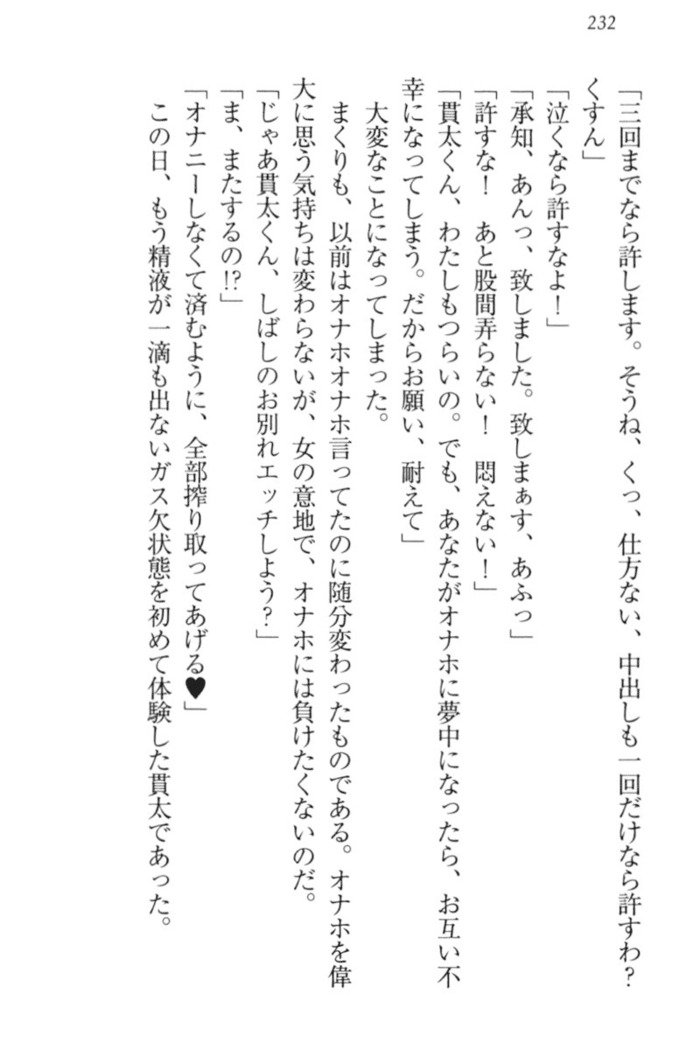 232
「三回までなら許します。そうね、くっ、仕方ない、中出しも一回だけなら許すわ？
くすん」
「泣くなら許すなよ！」
「承知、あんっ、致しました。致しまぁす、あふっ」
「許すな！　あと股間弄らない！　悶えない！」
「貫太くん、わたしもつらいの。でも、あなたがオナホに夢中になったら、お互い不
幸になってしまう。だからお願い、耐えて」
　大変なことになってしまった。
　まくりも、以前はオナホオナホ言ってたのに随分変わったものである。オナホを偉
大に思う気持ちは変わらないが、女の意地で、オナホには負けたくないのだ。
「じゃあ貫太くん、しばしのお別れエッチしよう？」
「ま、またするの!?」
「オナニーしなくて済むように、全部搾り取ってあげる♥」
　この日、もう精液が一滴も出ないガス欠状態を初めて体験した貫太であった。